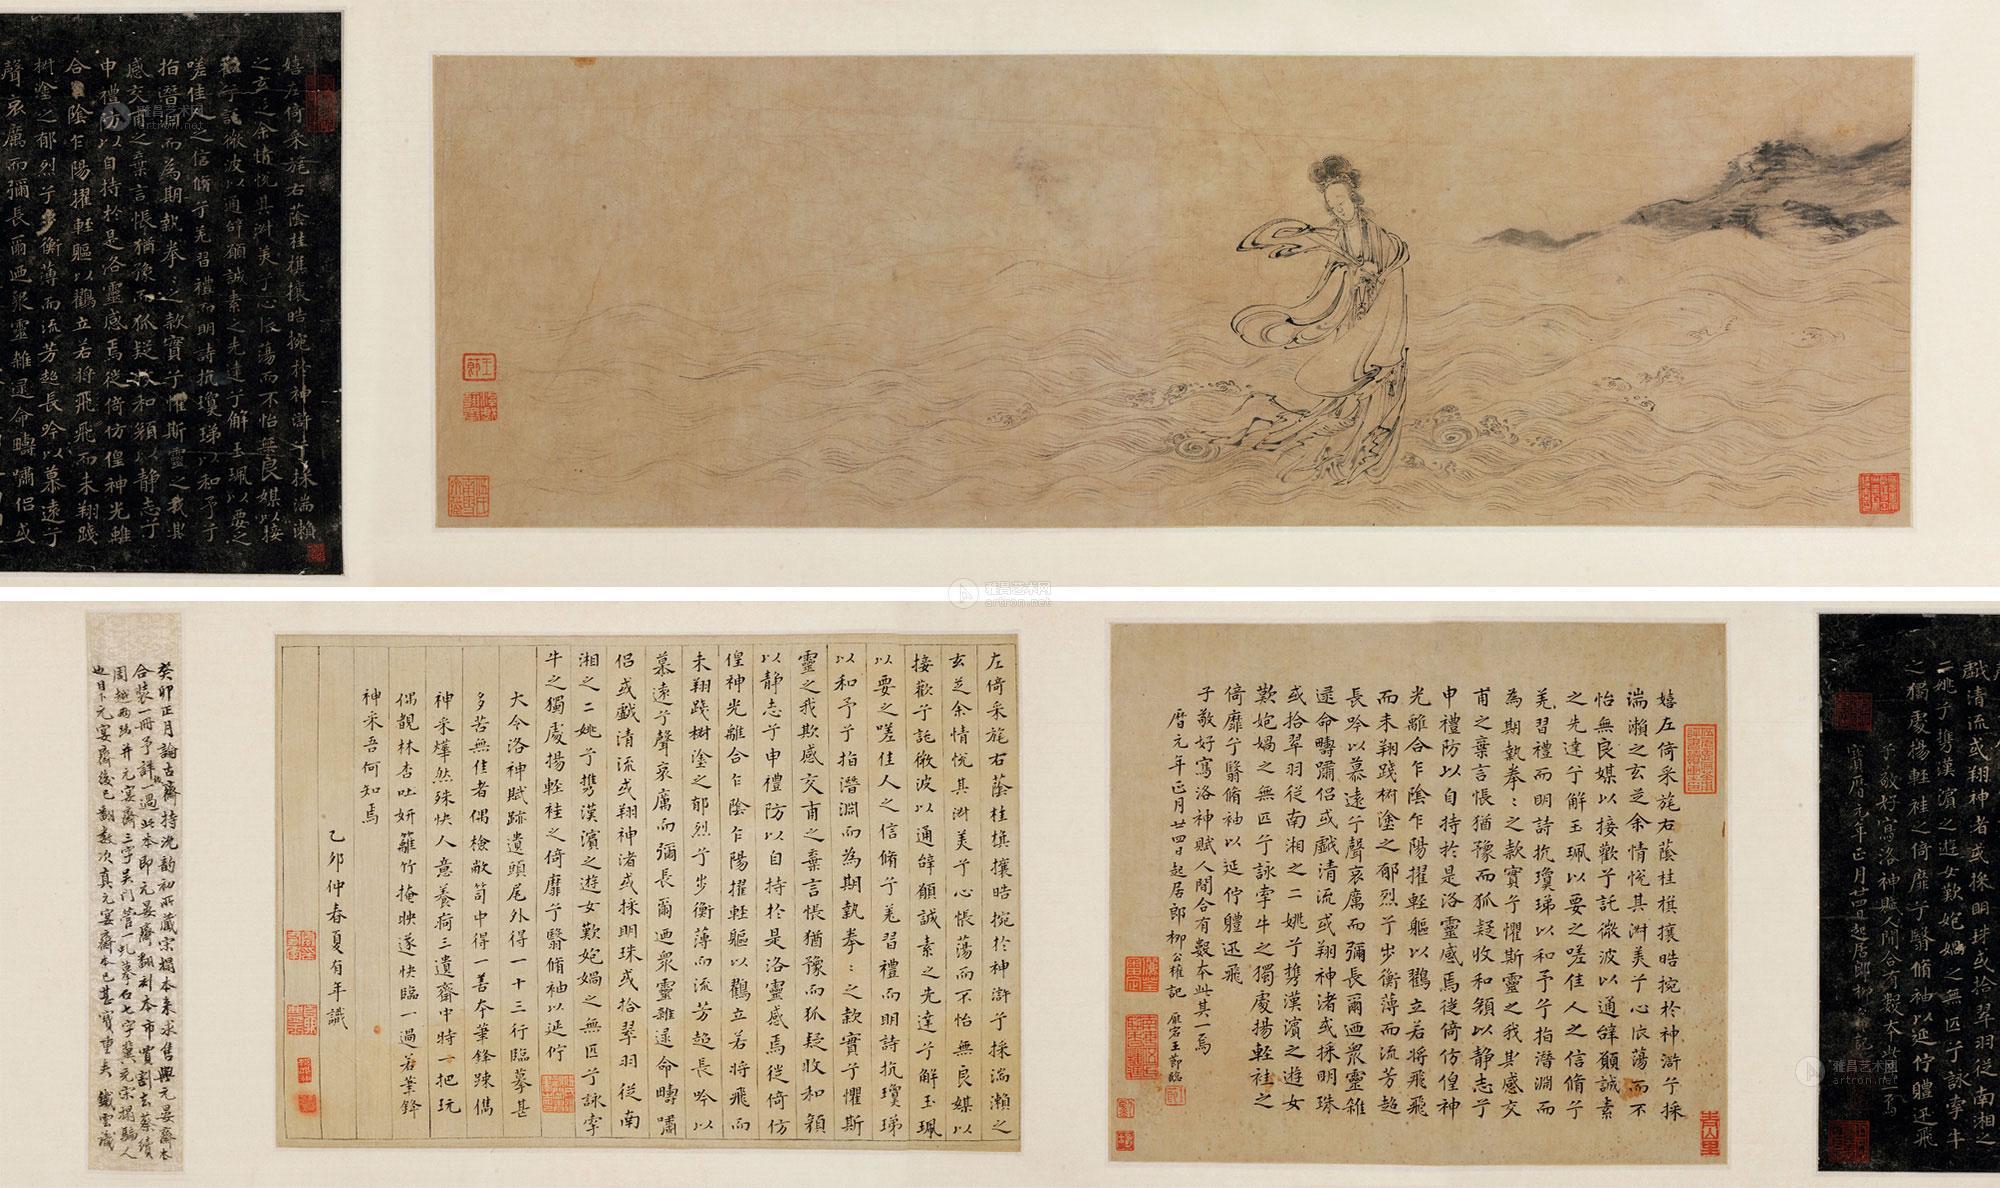 嬉左倚采旄右蔭桂旗攘晧捥於神滸兮採湍瀨
之玄芝余情悅其淑美兮心振蕩而不怡無良媒以接
歡兮託微波以通辭願誠素之先達兮解玉珮以要之
嗟佳人之信脩兮羌習禮而明詩抗瓊珶以和予兮
指潛淵而為期執拳〻之款實兮懼斯靈之我欺
感交甫之棄言悵猶豫而狐疑收和顏以靜志兮
申禮防以自持於是洛靈感焉徙倚仿偟神光離
合乍陰乍陽擢輕軀以鶴立若將飛飛而未翔踐
椒塗之郁烈兮步衡薄而流芳超長吟以慕遠兮
聲哀厲而彌長爾迺眾靈雜遝命疇嘯侶或
雅昌艺术网
artron.net
戲清流或翔神者或採明珠或拾翠羽從南湘之
二姚兮攜漢濱之遊女歎匏媧之無匹兮詠牽牛
之獨處揚輕袿之倚靡兮翳脩袖以延佇體迅飛
子敬好寫洛神賦人間合有數本此其一焉
寶曆元年正月廿四日起居郎柳公權記
嬉左倚采旄右蔭桂旗攘晧捥於神滸兮採
湍瀨之玄芝余情悅其淑美兮心振蕩而不
怡無良媒以接歡兮託微波以通辭願誠素
之先達兮解玉珮以要之嗟佳人之信脩兮
羌習禮而明詩抗瓊珶以和予兮指潛淵而
為期執拳〻之款實兮懼斯靈之我其感交
甫之棄言悵猶豫而狐疑收和顏以靜志兮
申禮防以自持於是洛靈感焉徙倚仿偟神
光離合乍陰乍陽擢輕軀以鶴立若將飛飛
而未翔踐椒塗之郁烈兮步衡薄而流芳超
長吟以慕遠兮聲哀厲而彌長爾迺眾靈雜
遝命疇嘯侶或戲清流或翔神渚或採明珠
或拾翠羽從南湘之二姚兮攜漢濱之遊女
歎匏媧之無匹兮詠牽牛之獨處揚輕袿之
倚靡兮翳脩袖以延佇體迅飛
子敬好寫洛神賦人間合有數本此其一焉
曆元年正月廿四日起居郎柳公權記 麻窑王節臨
左倚采旄右蔭桂旗攘晧捥於神滸兮採湍瀨之
玄芝余情悅其淑美兮心悵蕩而不怡無良媒以
接歡兮託微波以通辭願誠素之先達兮解玉珮
以要之嗟佳人之信脩兮羌習禮而明詩抗瓊珶
以和予兮指潛淵而為期執拳〻之款實兮懼斯
靈之我欺感交甫之棄言悵猶豫而狐疑收和顏
以靜志兮申禮防以自持於是洛靈感焉徙倚仿
偟神光離合乍陰乍陽擢輕軀以鶴立若將飛而
未翔踐椒塗之郁烈兮步衡薄而流芳超長吟以
慕遠兮聲哀厲而彌長爾迺眾靈雜遝命疇嘯
侶或戲清流或翔神渚或採明珠或拾翠羽從南
湘之二姚兮攜漢濱之遊女歎匏媧之無匹兮詠牽
牛之獨處揚輕袿之倚靡兮翳脩袖以延佇
大令洛神賦跡遺頭尾外得一十三行臨摹甚
多苦無佳者偶檢敝笥中得一善本筆鋒踈儁
神采燁然殊快人意養疴三遺齋中時一把玩
偶覩林杏吐妍籬竹掩映遂快臨一過若筆鋒
神采吾何知焉
乙卯仲春夏有年識
癸卯正月論古齋持沈韵初所藏宋搨本來求售與元晏齋本
合裝一冊予詳一過此本即元晏齋翻刻本市賈割去蔡續